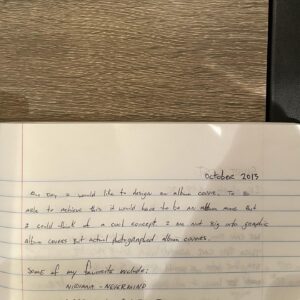 October 2013
One Day I would like to design an album cover. To be
able to achieve this it would have to be an album more But
I could think of a cool concept I am not Big into graphic
album covers But actual photographed album covers.
Some of my favorite include:
NIRVANA - NEVERMIND